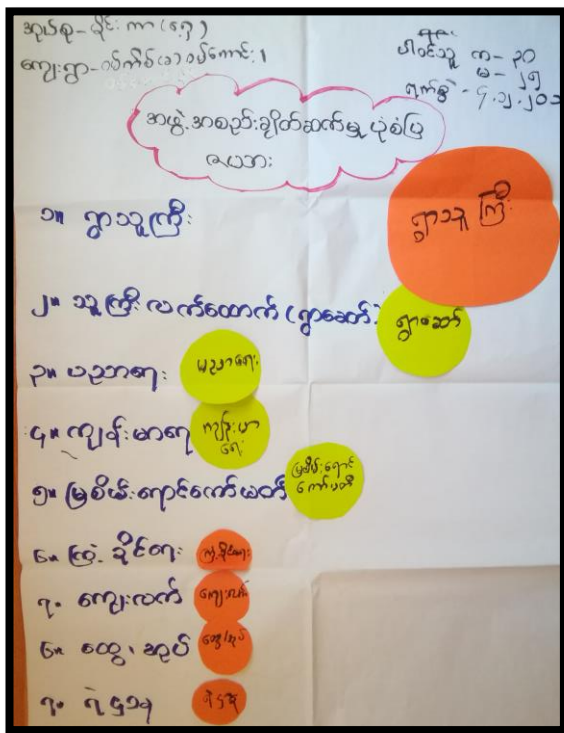 အုပ်စု - ခိုင်းကာ (၈၄)
ကျေးရွာ -
ပါဝင်သူ က - ၃၀
မ - ၂၅
ရက်စွဲ - ၄.၁၂.၂၀၁
အဖွဲ့အစည်းချိတ်ဆက်မှု ပုံစံပြ
ဇယား
၁။ ရွာသူကြီး
ရွာသူကြီး
၂။ သူကြီး လက်ထောက် (ရွာဆော်)
ရွာဆော်
၃။ ပညာရေး
ပညာရေး
၄။ ကျန်းမာရေ
ကျန်းမာ
ရေး
၅။ မြစိမ်းရောင်ကော်မတီ
မြစိမ်းရောင်
ကော်မတီ
၆။ ကြံ့ခိုင်ရေး
ကြံ့ခိုင်ရေး
၇။ ကျေးလက်
ကျေးလက်
၆။ ထွေ၊အုပ်
ထွေ၊အုပ်
၇။ ရဲဌာန
ရဲဌာန